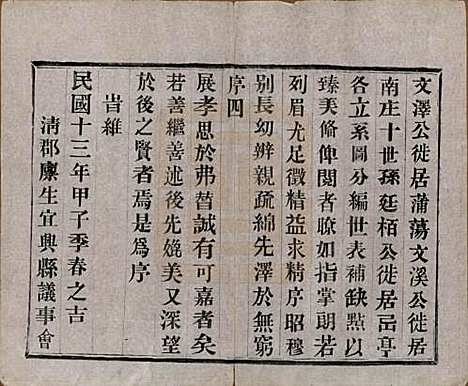 文澤公徙居蒲蕩文溪公徙居
南庄十世孫廷栢公徙居邑亭
各立系圖分編世表補缺點以
臻美俻俾閱者瞭如指掌朗若
列眉尤足徵精益求精序昭穆
别長幼辨親疏綿先澤於無窮
序四
展孝思於弗替誠有可嘉者矣
若善繼善述後先媲美又深望
於後之賢者焉是爲序
旹維
民國十三年甲子季春之吉
清郡廪生宜興縣議事會